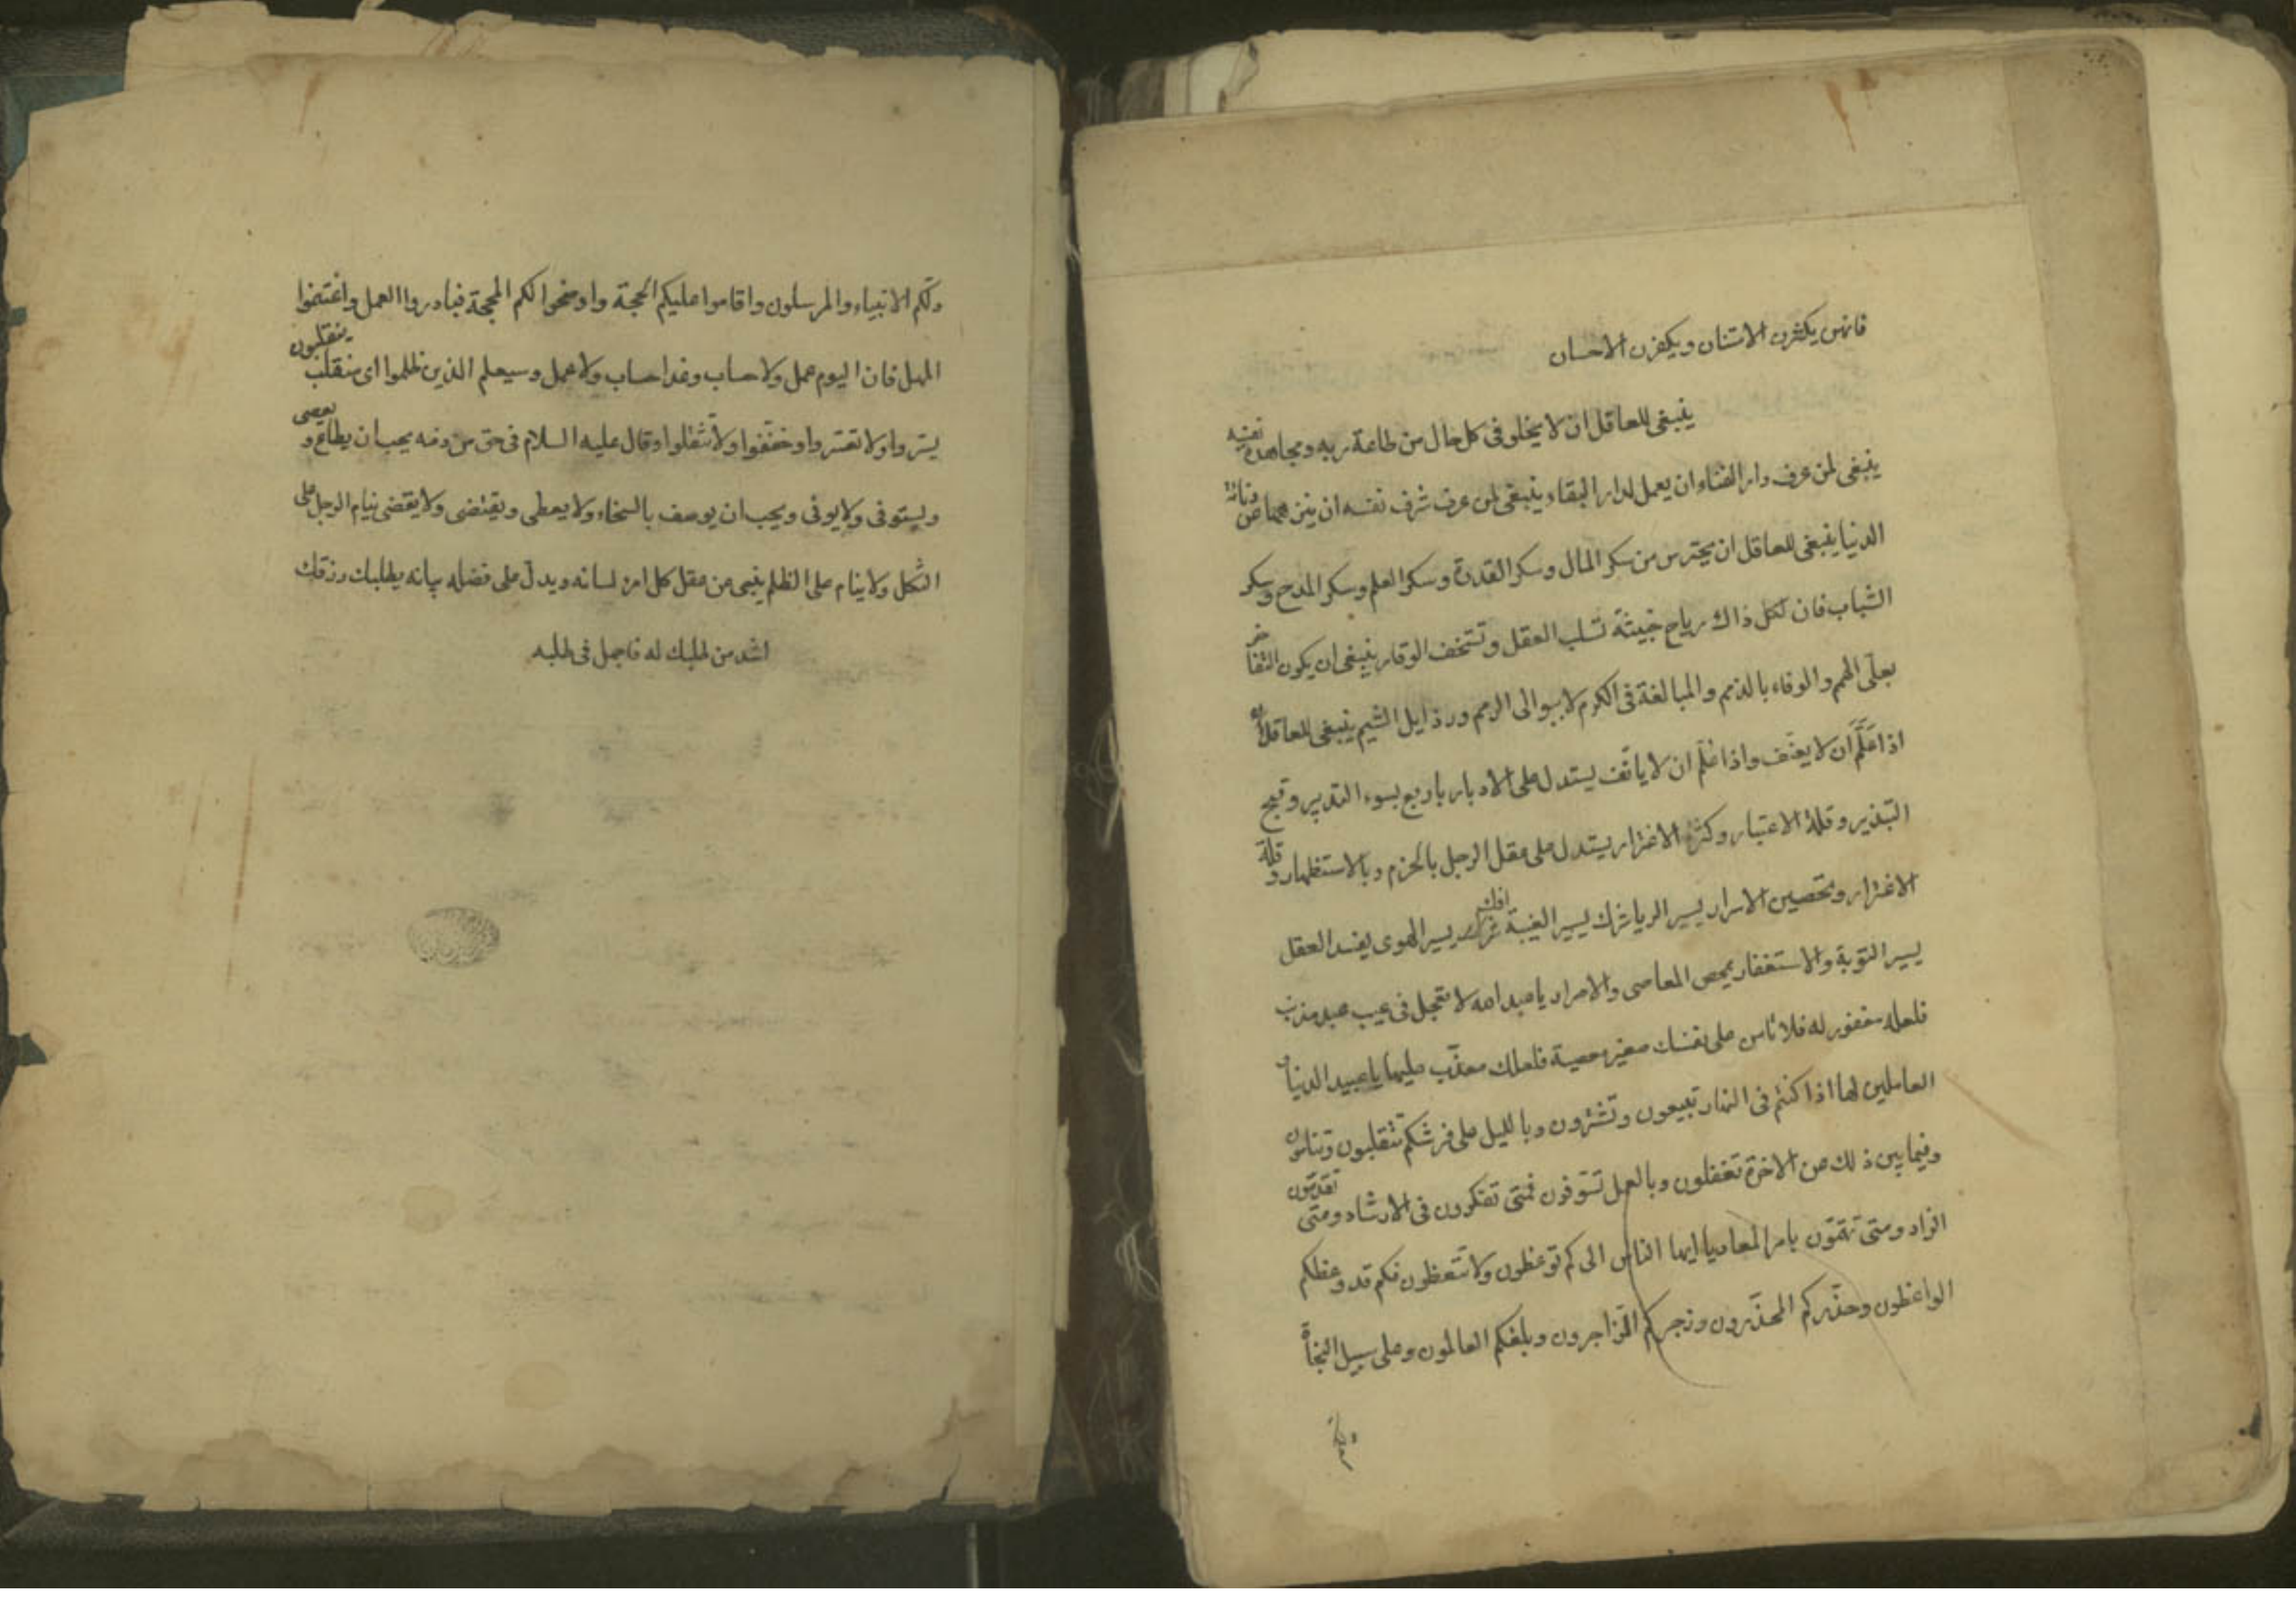 فانهن يكثرن الامتنان ويكفرن الاحسان
ينبغى للعاقل ان لا يخلو فى كل حال من طاعة ربه ومجاهدة نفسه
ينبغى لمن عرف دار الفناء ان يعمل لدار البقاء ينبغى لمن عرف شرف نفسه ان ينزهها عن دنائة
الدنيا ينبغى للعاقل ان يحترس من سكر المال وسكر القدرة وسكر العلم وسكر المدح وسكر
الشباب فان لكل ذاك رياح خبيثة تسلب العقل وتستخف الوقار ينبغى ان يكون التفاخر
بعلى الهمم والوفاء بالذمم والمبالغة فى الكرم لا ببوالى الرمم ورذايل الشيم ينبغى للعاقل
اذا علّم ان لا يعنف واذا علم ان لا يانف يستدل على الادبار باربع بسوء التدبير وقبح
التبذير وقلة الاعتبار وكثرة الاغترار يستدل على عقل الرجل بالحزم وبالاستظهار وقلة
الاغترار وتحصين الاسرار يسير الريا شرك يسير الغيبة افك يسير الهوى يفسد العقل
يسير التوبة والاستغفار يمحص المعاصى والاصرار يا عبد الله لا تعجل فى عيب عبد مذنب
فلعله مغفور له فلا تامن على نفسك صغير معصية فلعلك معذّب عليها يا عبيد الدنيا و
العاملين لها اذا كنتم فى النهار تبيعون وتشترون وبالليل على فرشكم تتقلبون وتنامون
وفيما بين ذلك عن الاخرة تغفلون وبالعمل تسوّفون فمتى تفكرون فى الارشاد ومتى تقدمون
الزاد ومتى تهتمّون بامر المعاد يا ايها الناس الى كم توعظون ولا تتعظون فكم قد وعظكم
الواعظون وحذّركم المحذّرون وزجركم الزّاجرون وبلغكم العالمون وعلى سبيل النجاة
دلّكم الانبياء والمرسلون واقاموا عليكم الحجة واوضحوا لكم المحجة فبادروا العمل واغتنموا
المهل فان اليوم عمل ولا حساب وغدا حساب ولا عمل وسيعلم الذين ظلموا اى منقلب ينقلبون
يسّروا ولا تعسّروا وخفّفوا ولا تثقلوا وقال عليه السلام فى حق من ذمه يحب ان يطاع و يعصى
ويستوفى ولا يوفى ويحب ان يوصف بالسخاء ولا يعطى ويقتضى ولا يقضى ينام الرجل على
الثكل ولا ينام على الظلم ينبى عن عقل كل امرء لسانه ويدلّ على فضله بيانه يطلبك رزقك
اشد من طلبك له فاجمل فى طلبه